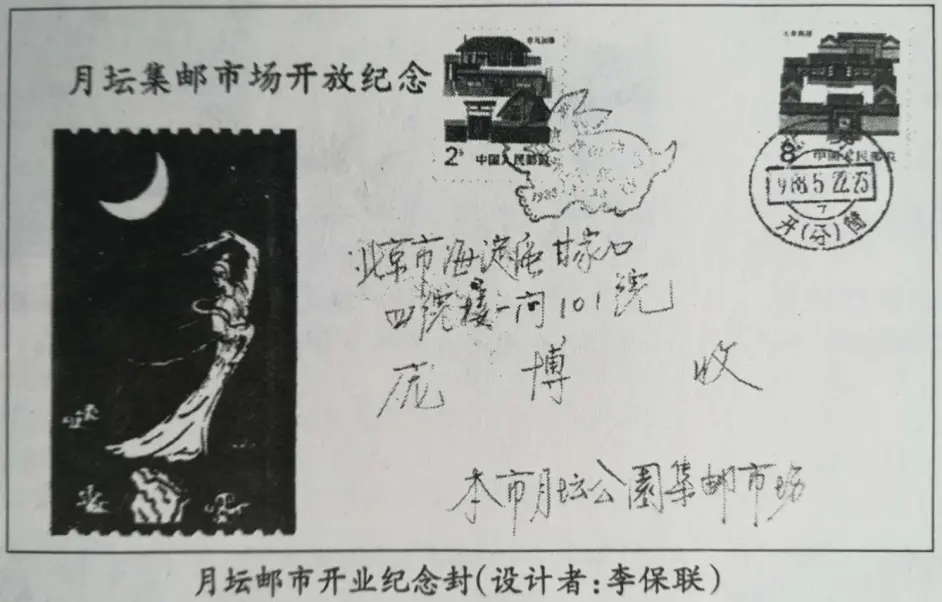 月坛集邮市场开放纪念
2分
中国人民邮政
8
中国人民邮政
1988
1988.5.22.23
开(分)筒
北京市海淀区甘家口
四号楼一门101号
庞博 收
本市月坛公园集邮市场
月坛邮市开业纪念封(设计者:李保联)